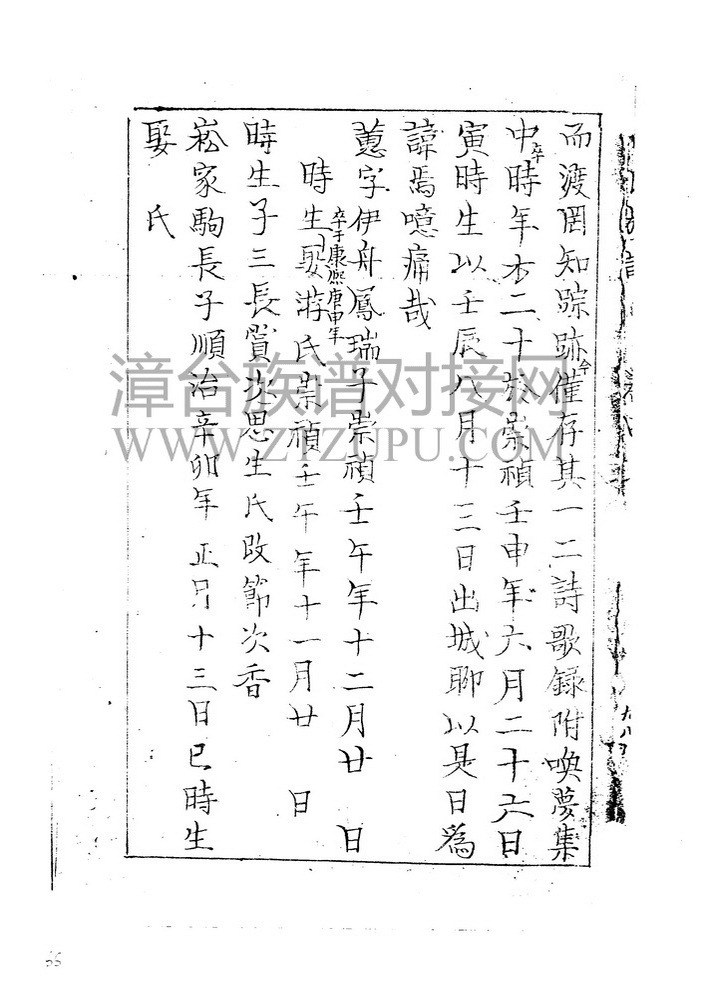 而渡罔知踪跡今僅存其一二詩歌録附喚夢集
中卒時年才二十於崇禎壬申年六月二十六日
寅時生以壬辰八月十三日出城聊以是日為
諱焉噫痛哉
蕙字伊舟鳳瑞子崇禎壬午年十二月廿 日
時生卒于康熙庚申年娶游氏崇禎壬午年十一月廿 日
時生子三長賞次思生氏改節次香
崧家駒長子順治辛卯年正月十三日巳時生
娶 氏
漳台族谱对接网
WWW.ZTZUPU.COM